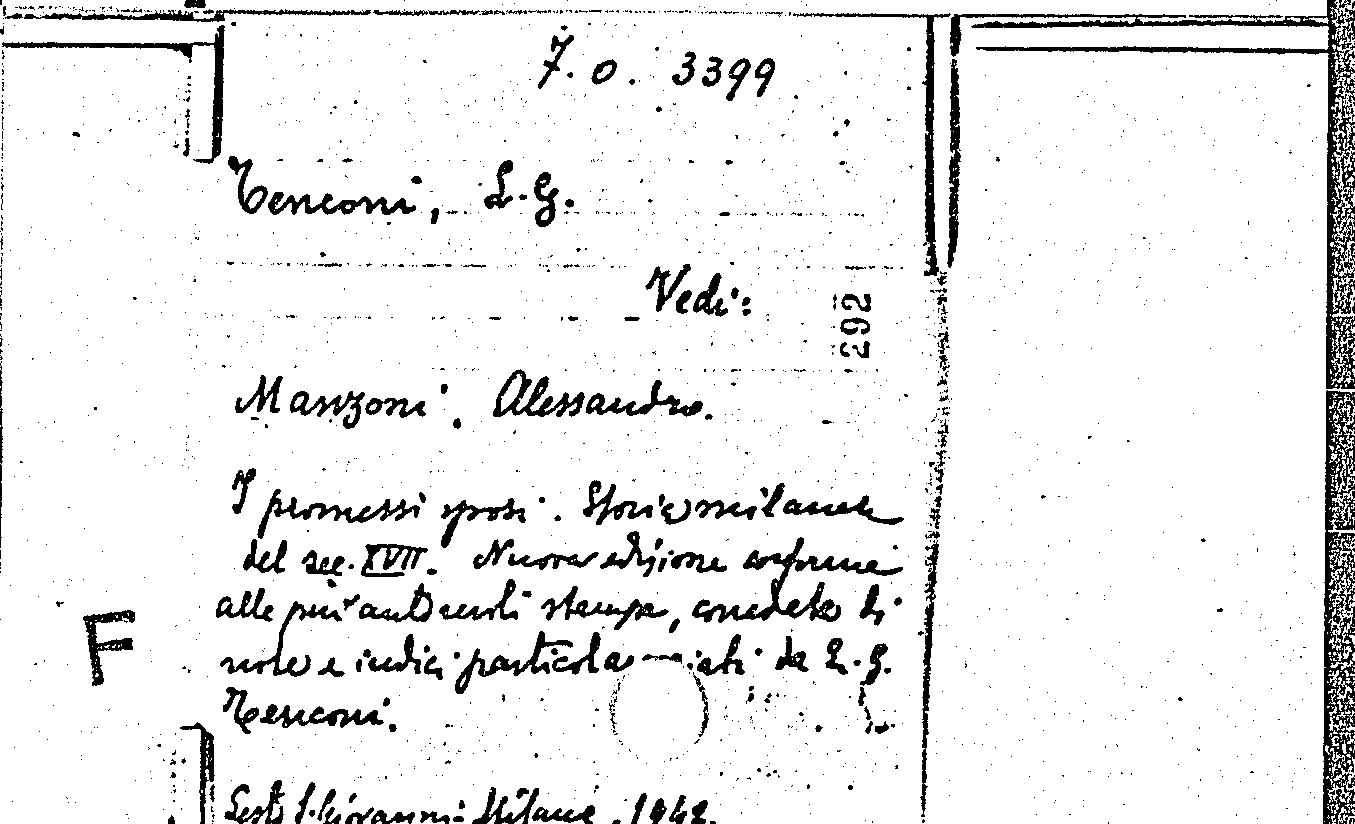 7. O. 3399
Tenconi, L. G.
Vedi:
292
Manzoni, Alessandro.
I promessi sposi. Storia milanese
del sec. XVII. Nuova edizione conforme
alle più stampe, corredata di
note e indici da L. G.
Tenconi.
F
Sesto S. Giovanni - Milano, 1942.